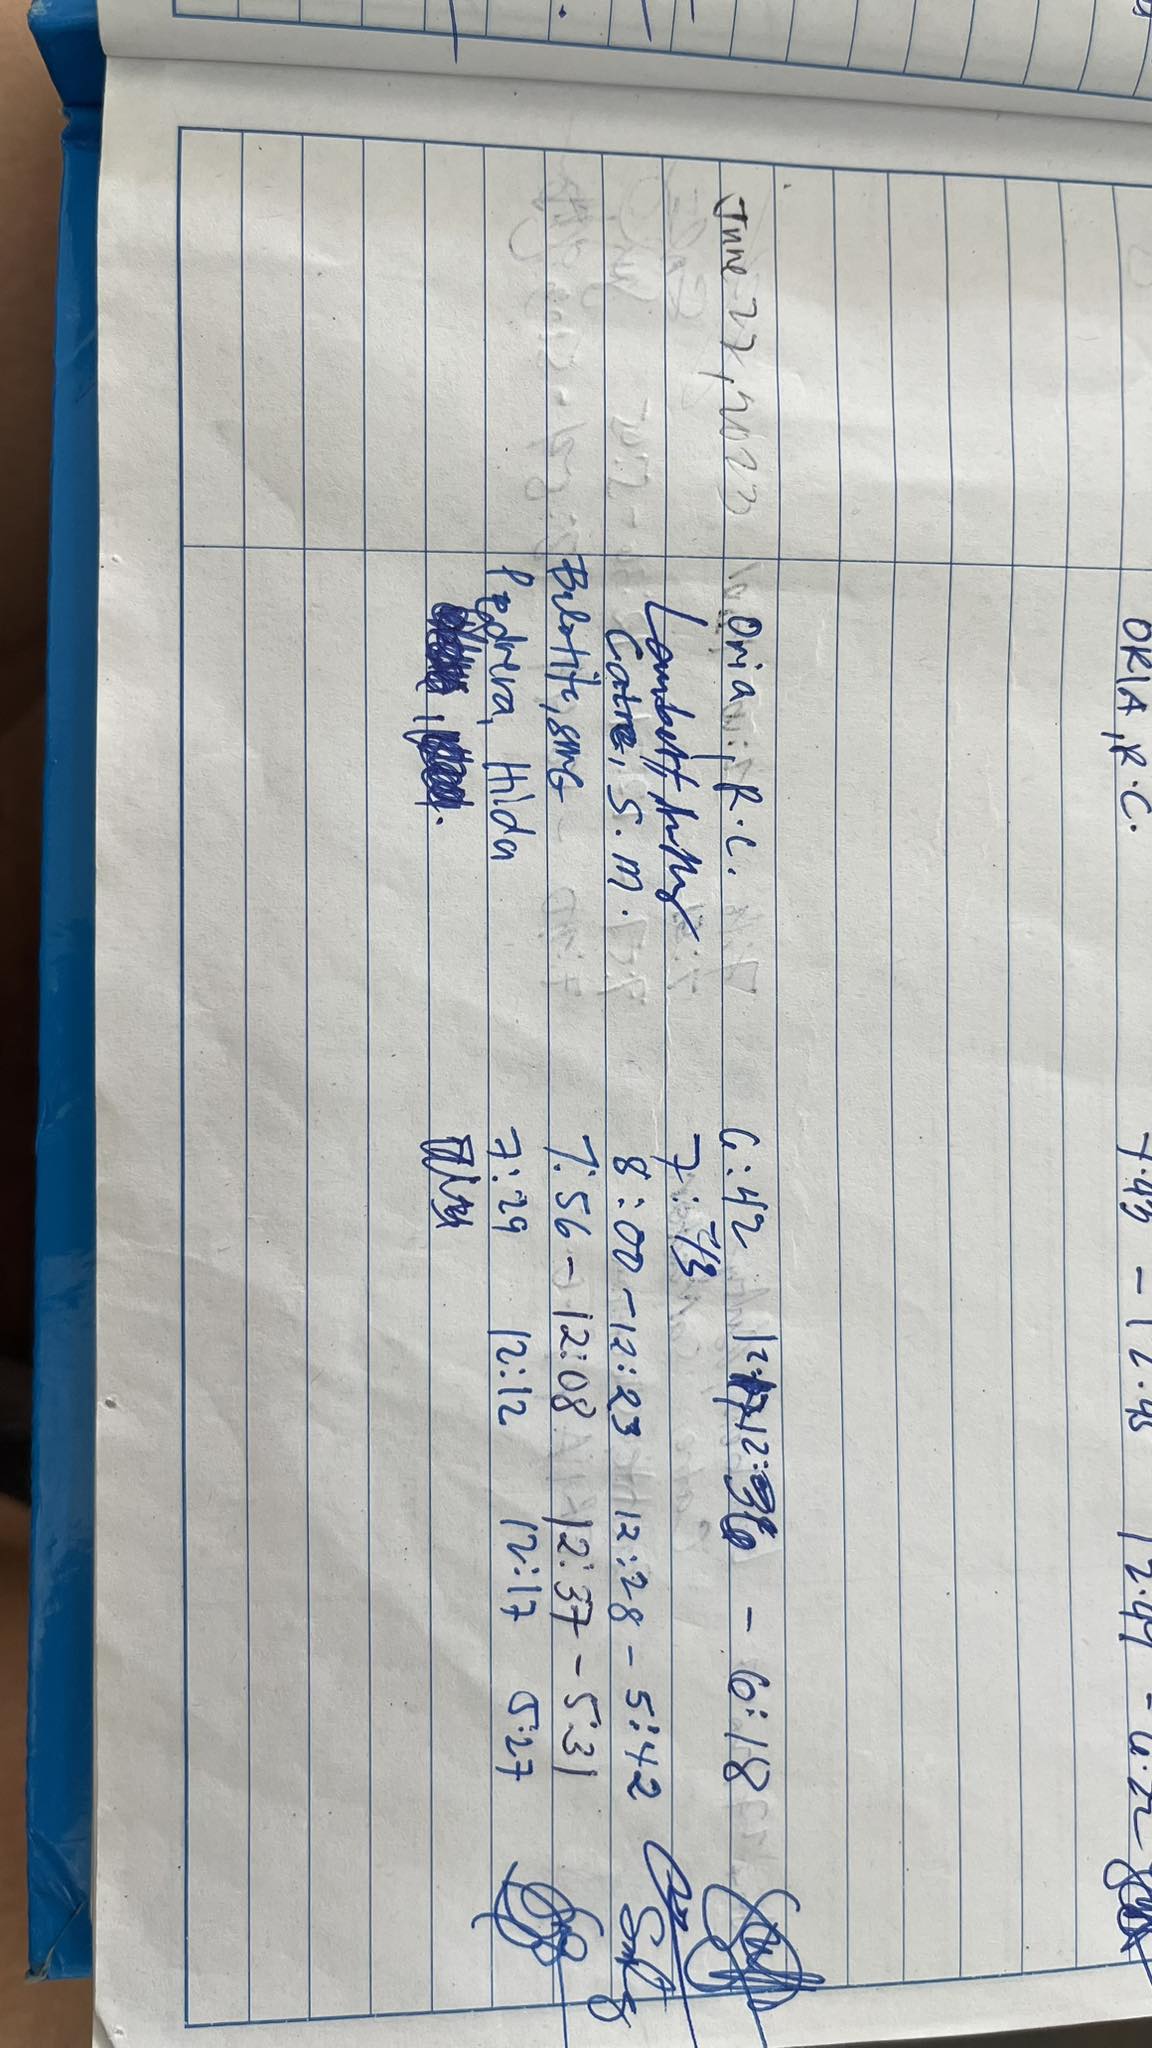 ORIA, R.C. 7:43 - 12:45 12:49 - 6:22
June 27, 2023 Oria, R.C. 6:42 12:36 - 6:18
7:43
Catre, S.M. 8:00 - 12:23 12:28 - 5:42
7:56 - 12:08 12:37 - 5:31
Pedrera, Hilda 7:29 12:12 12:17 5:27